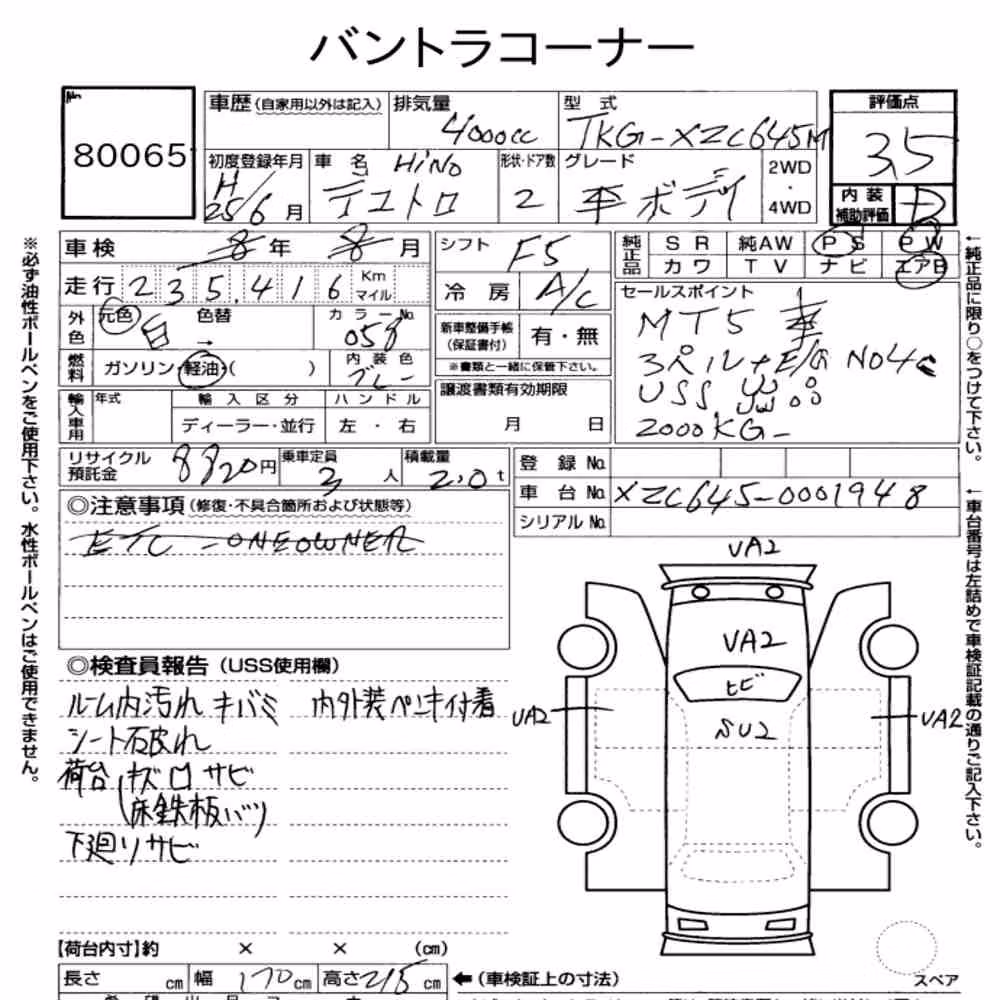 バントラコーナー
No.
80065
車歴(自家用以外は記入)
排気量
4000cc
型 式
TKG-XZC645M
評価点
3.5
初度登録年月
H 25/6月
車 名 HiNO
デュトロ
形状・ドア数
2
グレード
平ボデイ
2WD
・
4WD
内 装
補助評価
D
車検 8 年 8 月
走行 235,416 Km マイル
外色
元色 白 色替 →
カラーNo.
058
燃料
ガソリン・軽油・( )
内 装 色
グレー
輸入車用
年式
輸 入 区 分
ディーラー・並行
ハ ン ド ル
左 ・ 右
シフト F5
冷 房 A/C
新車整備手帳
(保証書付)
有・無
※書類と一緒に保管下さい。
譲渡書類有効期限
月 日
純正品
S R 純AW P S P W
カワ T V ナビ エアB
セールスポイント
MT5
3ペル+E/G NO4c
USS
2000KG-
リサイクル
預託金
8820円
乗車定員
3人
積載量
2.0t
登 録 No.
車 台 No. XZC645-0001948
シリアル No.
◎注意事項(修復・不具合箇所および状態等)
ETC - ONEOWNER
◎検査員報告(USS使用欄)
ルーム内汚れ キバミ 内外装ペンキ付着
シート破れ
荷台 キズ ロ サビ
床鉄板バツ
下廻りサビ
VA2
VA2
ヒビ
SU2
VA2
VA2
スペア
【荷台内寸】約 × × (cm)
長さ cm 幅 170cm 高さ215cm ←(車検証上の寸法)
※必ず油性ボールペンをご使用下さい。水性ボールペンはご使用できません。
←純正品に限り○をつけて下さい。
←車台番号は左詰めで車検証記載の通りご記入下さい。